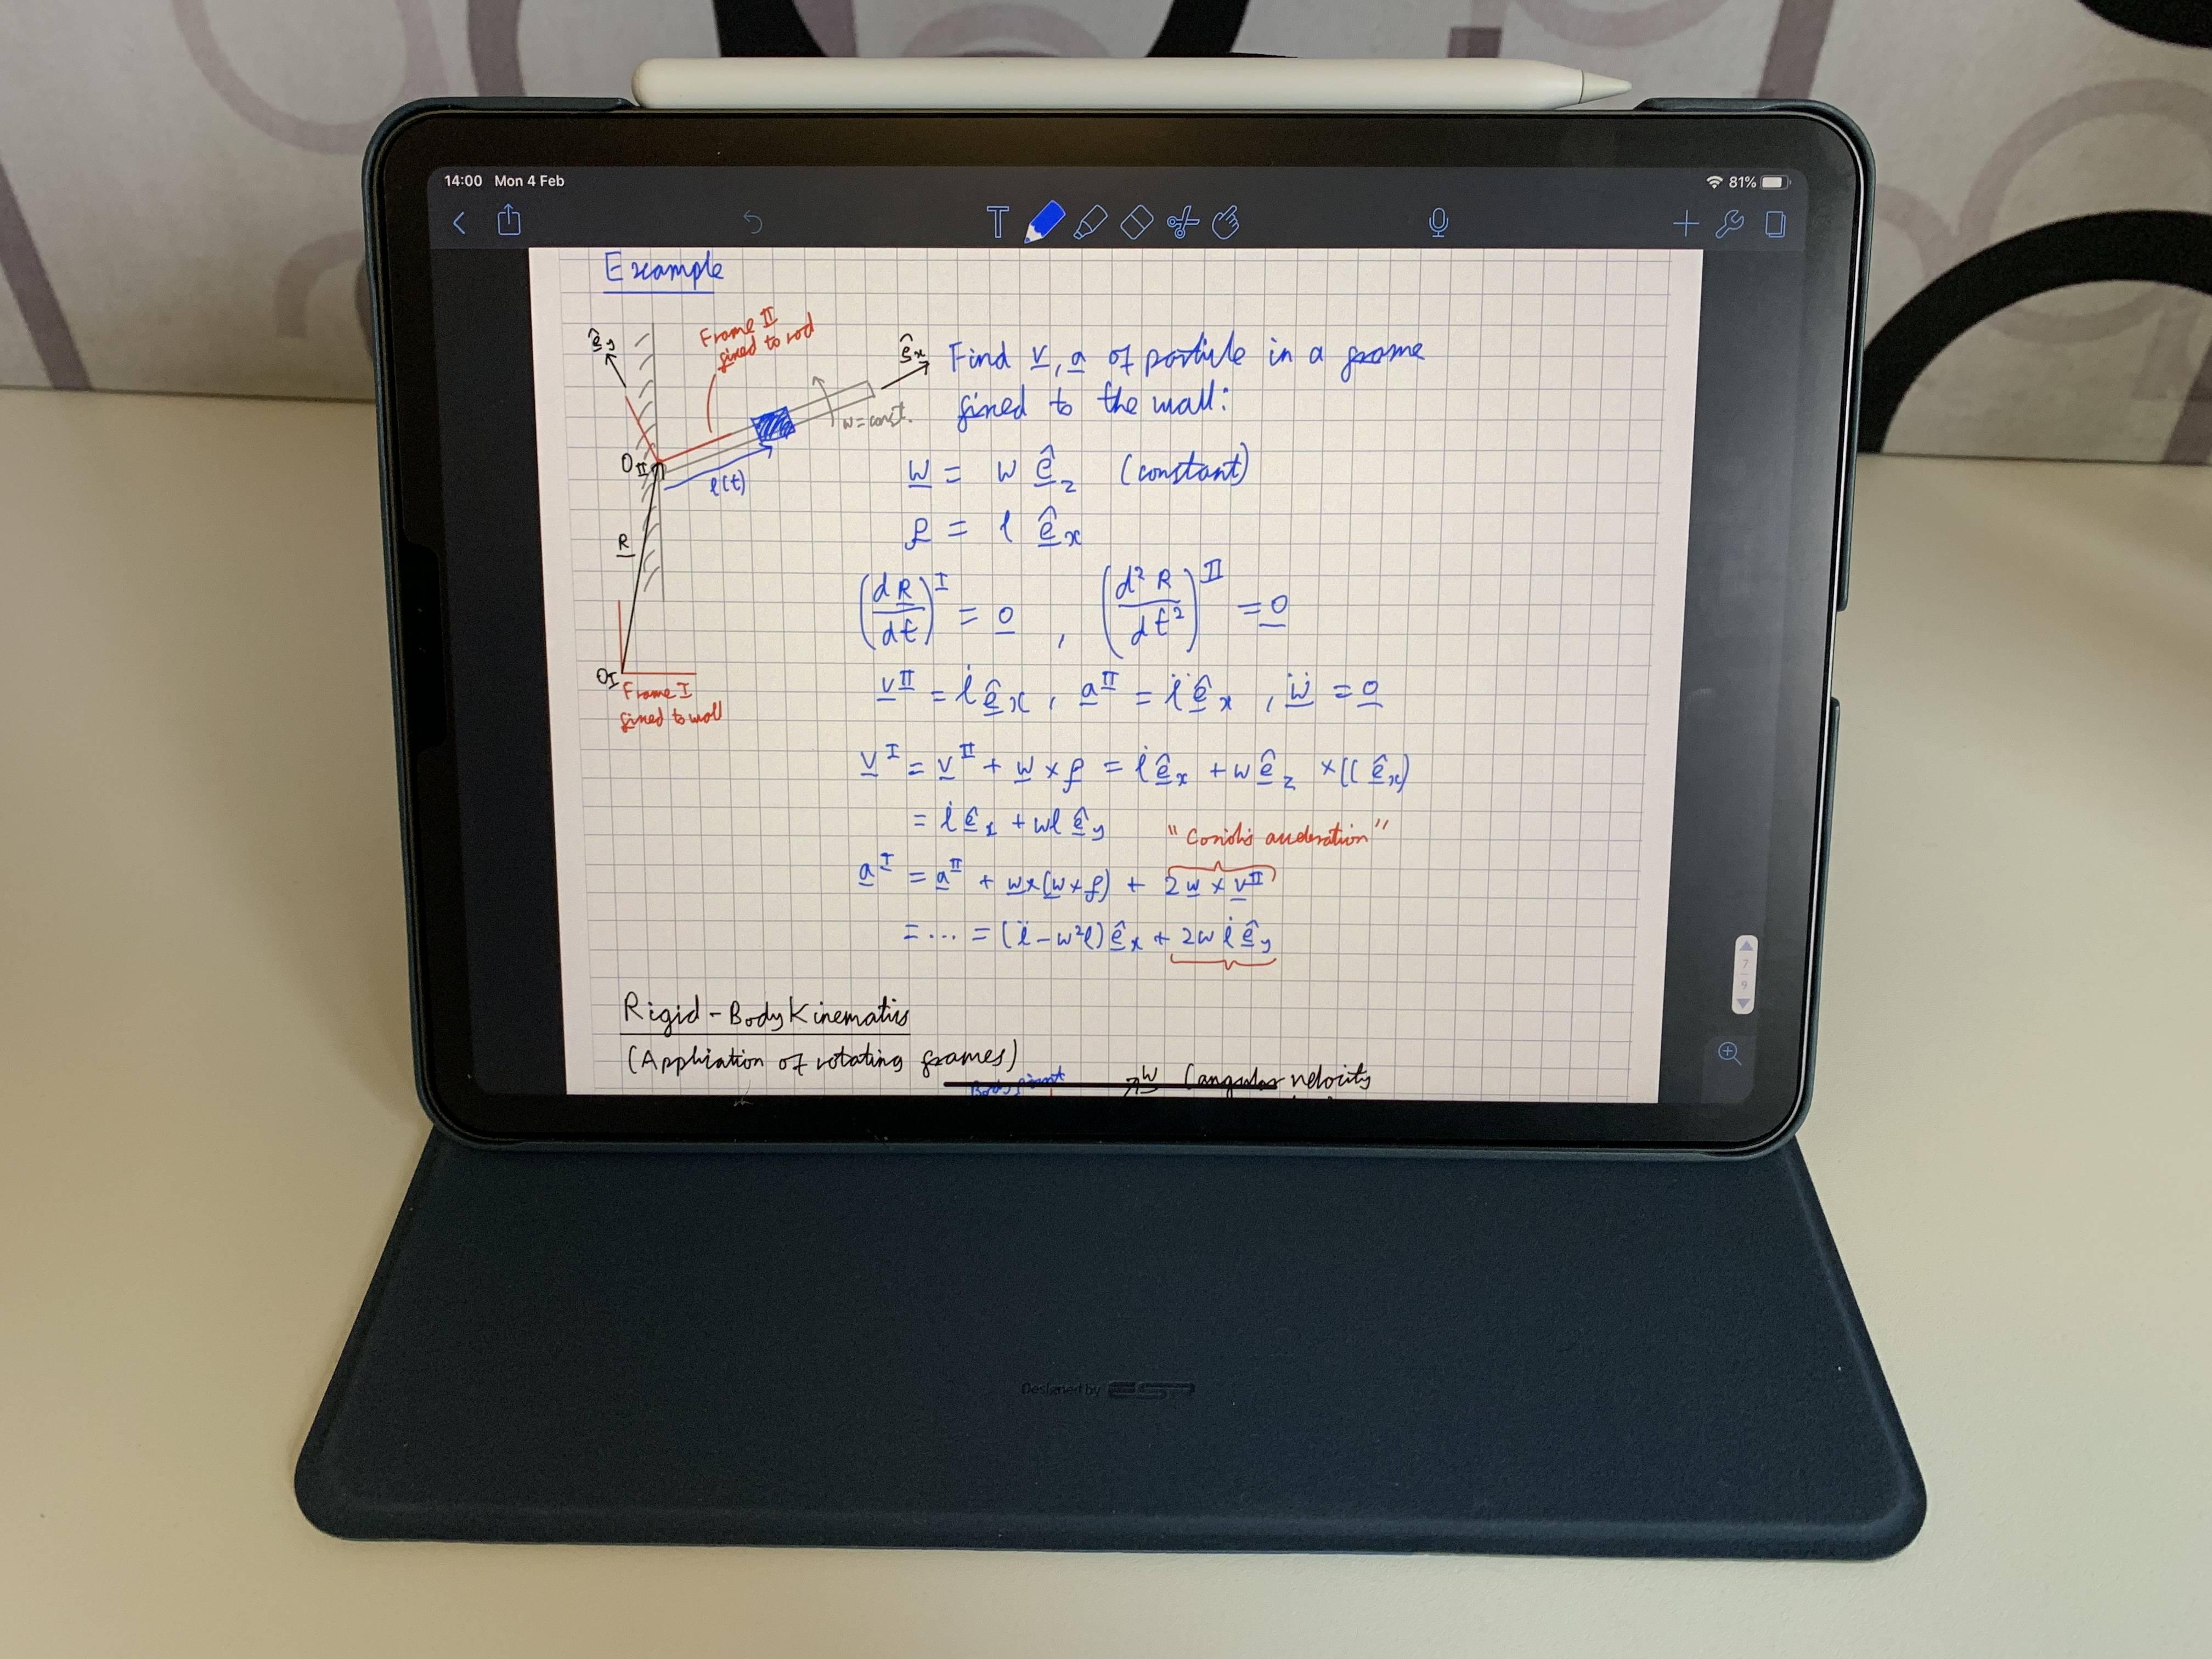 14:00 Mon 4 Feb
81%
T
Example
ê_y
Frame II
fixed to rod
ê_x
Find v, a of particle in a frame
fixed to the wall:
w = const.
O_II
l(t)
R
O_I
Frame I
fixed to wall
w = w ê_z (constant)
ρ = l ê_x
(dR/dt)^I = 0 , (d²R/dt²)^II = 0
v^II = l̇ ê_x , a^II = l̈ ê_x , ẇ = 0
v^I = v^II + w × ρ = l̇ ê_x + w ê_z × (l ê_x)
= l̇ ê_x + wl ê_y
"Coriolis acceleration"
a^I = a^II + w×(w×ρ) + 2w × v^II
= ... = (l̈ - w²l) ê_x + 2w l̇ ê_y
7
9
Rigid-Body Kinematics
(Application of rotating frames)
Body point
w (angular velocity
Designed by ESR